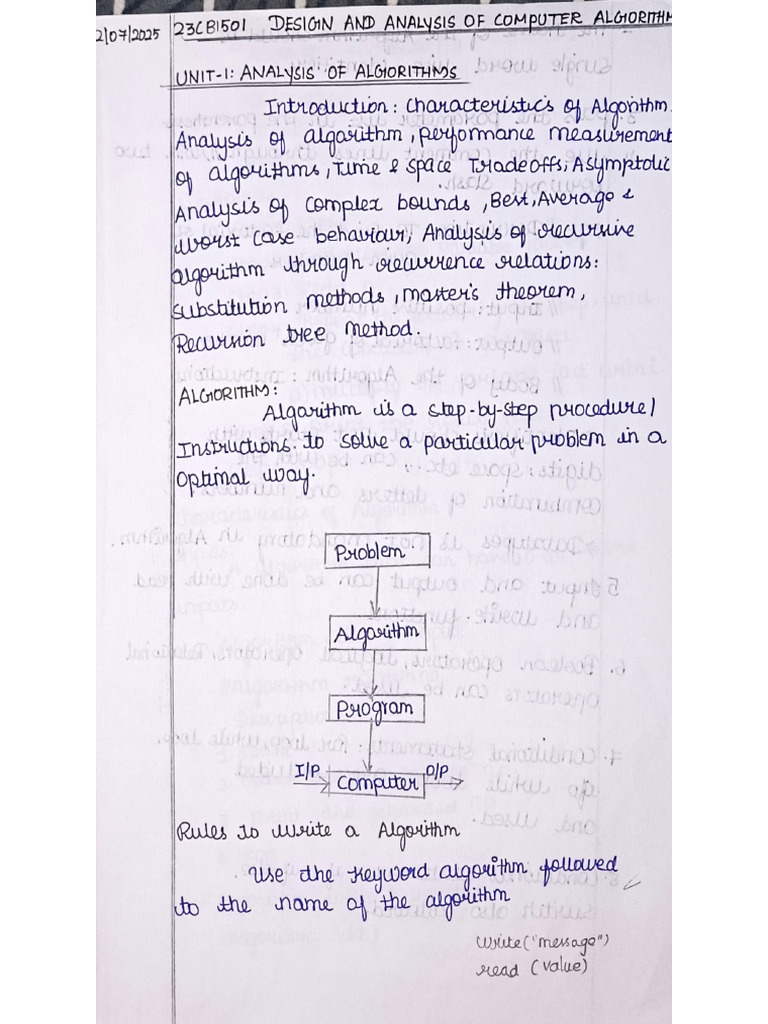 2/07/2025
23CB1501 DESIGN AND ANALYSIS OF COMPUTER ALGORITHM
UNIT-1: ANALYSIS OF ALGIORITHMS
Introduction: Characteristics of Algorithm.
Analysis of algarithm, performance measurement
of algorithms, Time & space Tradeoffs, Asymptolic
Analysis of complex bounds, Best, Average &
worst case behaviour, Analysis of recursive
algorithm through recurrence relations:
substitution methods, master's theorem,
Recursion tree method.
ALGIORITHM:
Algarithm is a step-by-step procedure/
Instructions to solve a particular problem in a
optimal way.
Problem
Algarithm
Program
I/P Computer O/P
Rules to write a Algorithm
Use the keyword algorithm followed
to the name of the algorithm
write("message")
read (value)